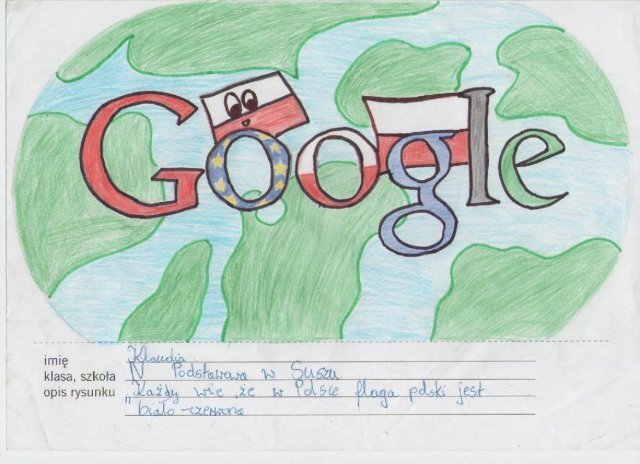 Google
imię Klaudia
klasa, szkoła IV Podstawowa w Suszu
opis rysunku „Każdy wie, że w Polsce flaga polski jest
biało-czerwona